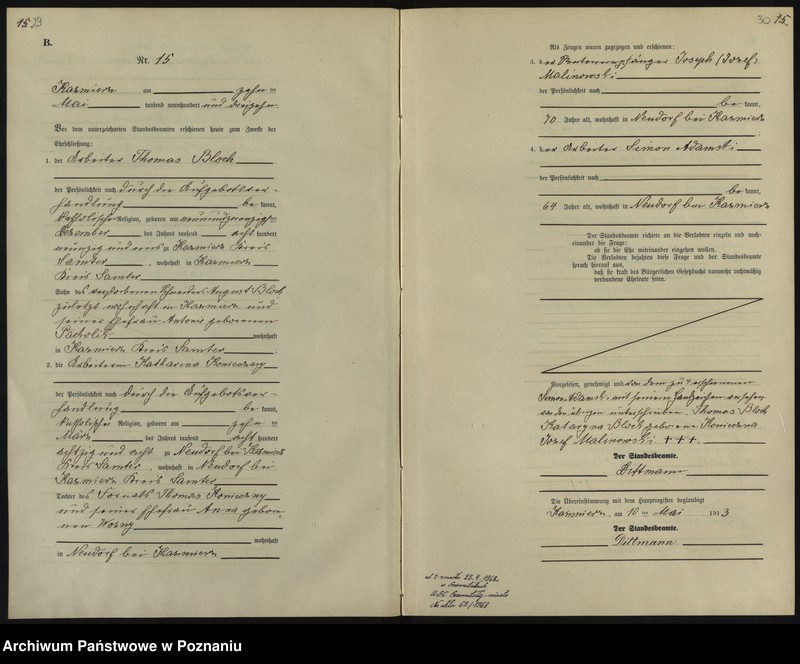 15 29
B.
Nr. 15
Kazmierz am zehn ten
Mai tausend neunhundert und dreizehn.
Vor dem unterzeichneten Standesbeamten erschienen heute zum Zwecke der
Eheschließung:
1. der Arbeiter Thomas Bloch
der Persönlichkeit nach durch die Aufgebotsver-
handlung be kannt,
katholischer Religion, geboren am neunundzwanzigsten
Dezember des Jahres tausend acht hundert
neunzig und eins zu Kazmierz Kreis
Samter, wohnhaft in Kazmierz
Kreis Samter
Sohn des verstorbenen Schneiders August Bloch
zuletzt wohnhaft in Kazmierz und
seiner Ehefrau Antonie geborenen
Pacholik wohnhaft
in Kazmierz Kreis Samter;
2. die Arbeiterin Katharina Konieczny
der Persönlichkeit nach durch die Aufgebotsver-
handlung be kannt,
katholischer Religion, geboren am zehn ten
März des Jahres tausend acht hundert
achtzig und acht zu Neudorf bei Kazmierz
Kreis Samter, wohnhaft in Neudorf bei
Kazmierz Kreis Samter
Tochter des Fornals Thomas Konieczny
und seiner Ehefrau Anna gebore-
nen Wozny
wohnhaft
in Neudorf bei Kazmierz
30 15.
Als Zeugen waren zugezogen und erschienen:
3. der Rentenempfänger Joseph (Jozef)
Malinowski
der Persönlichkeit nach
be kannt,
70 Jahre alt, wohnhaft in Neudorf bei Kazmierz
;
4. der Arbeiter Simon Adamski
der Persönlichkeit nach
be kannt,
64 Jahre alt, wohnhaft in Neudorf bei Kazmierz
Der Standesbeamte richtete an die Verlobten einzeln und nach-
einander die Frage:
ob sie die Ehe miteinander eingehen wollen.
Die Verlobten bejahten diese Frage und der Standesbeamte
sprach hierauf aus,
daß sie kraft des Bürgerlichen Gesetzbuchs nunmehr rechtmäßig
verbundene Eheleute seien.
Vorgelesen, genehmigt und von dem zu 4 erschienenen
Simon Adamski mit seinem Handzeichen versehen
von den übrigen unterschrieben. Thomas Bloch
Kataryna Bloch geborene Konieczna
Jozef Malinowski + + +.
Der Standesbeamte.
Dittmann
Die Übereinstimmung mit dem Hauptregister beglaubigt
Kazmierz, am 10 ten Mai 1913
Der Standesbeamte.
Dittmann.
ad 2 zmarła 22.4.1968
w
USC miasto
Nr aktu 62/1968
Archiwum Państwowe w Poznaniu